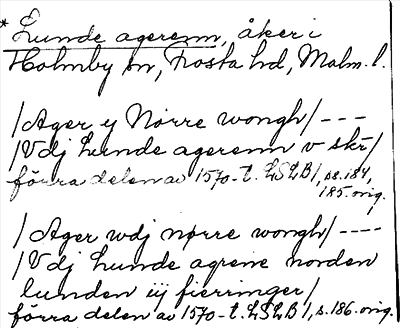 * Lunde agerenn, åker i
Holmby sn, Frosta hd, Malm. l.
/Ager ij Nørre wongh/ - - -
/Vdj Lunde agerenn v skr/
förra delen av 1570-t. LSLB/, s. 184,
185. orig.
/Ager wdj nørre wongh/ - - - -
/Vdj Lunde agrene norden
lunden iij fierringer/
förra delen av 1570-t. LSLB/, s. 186. orig.